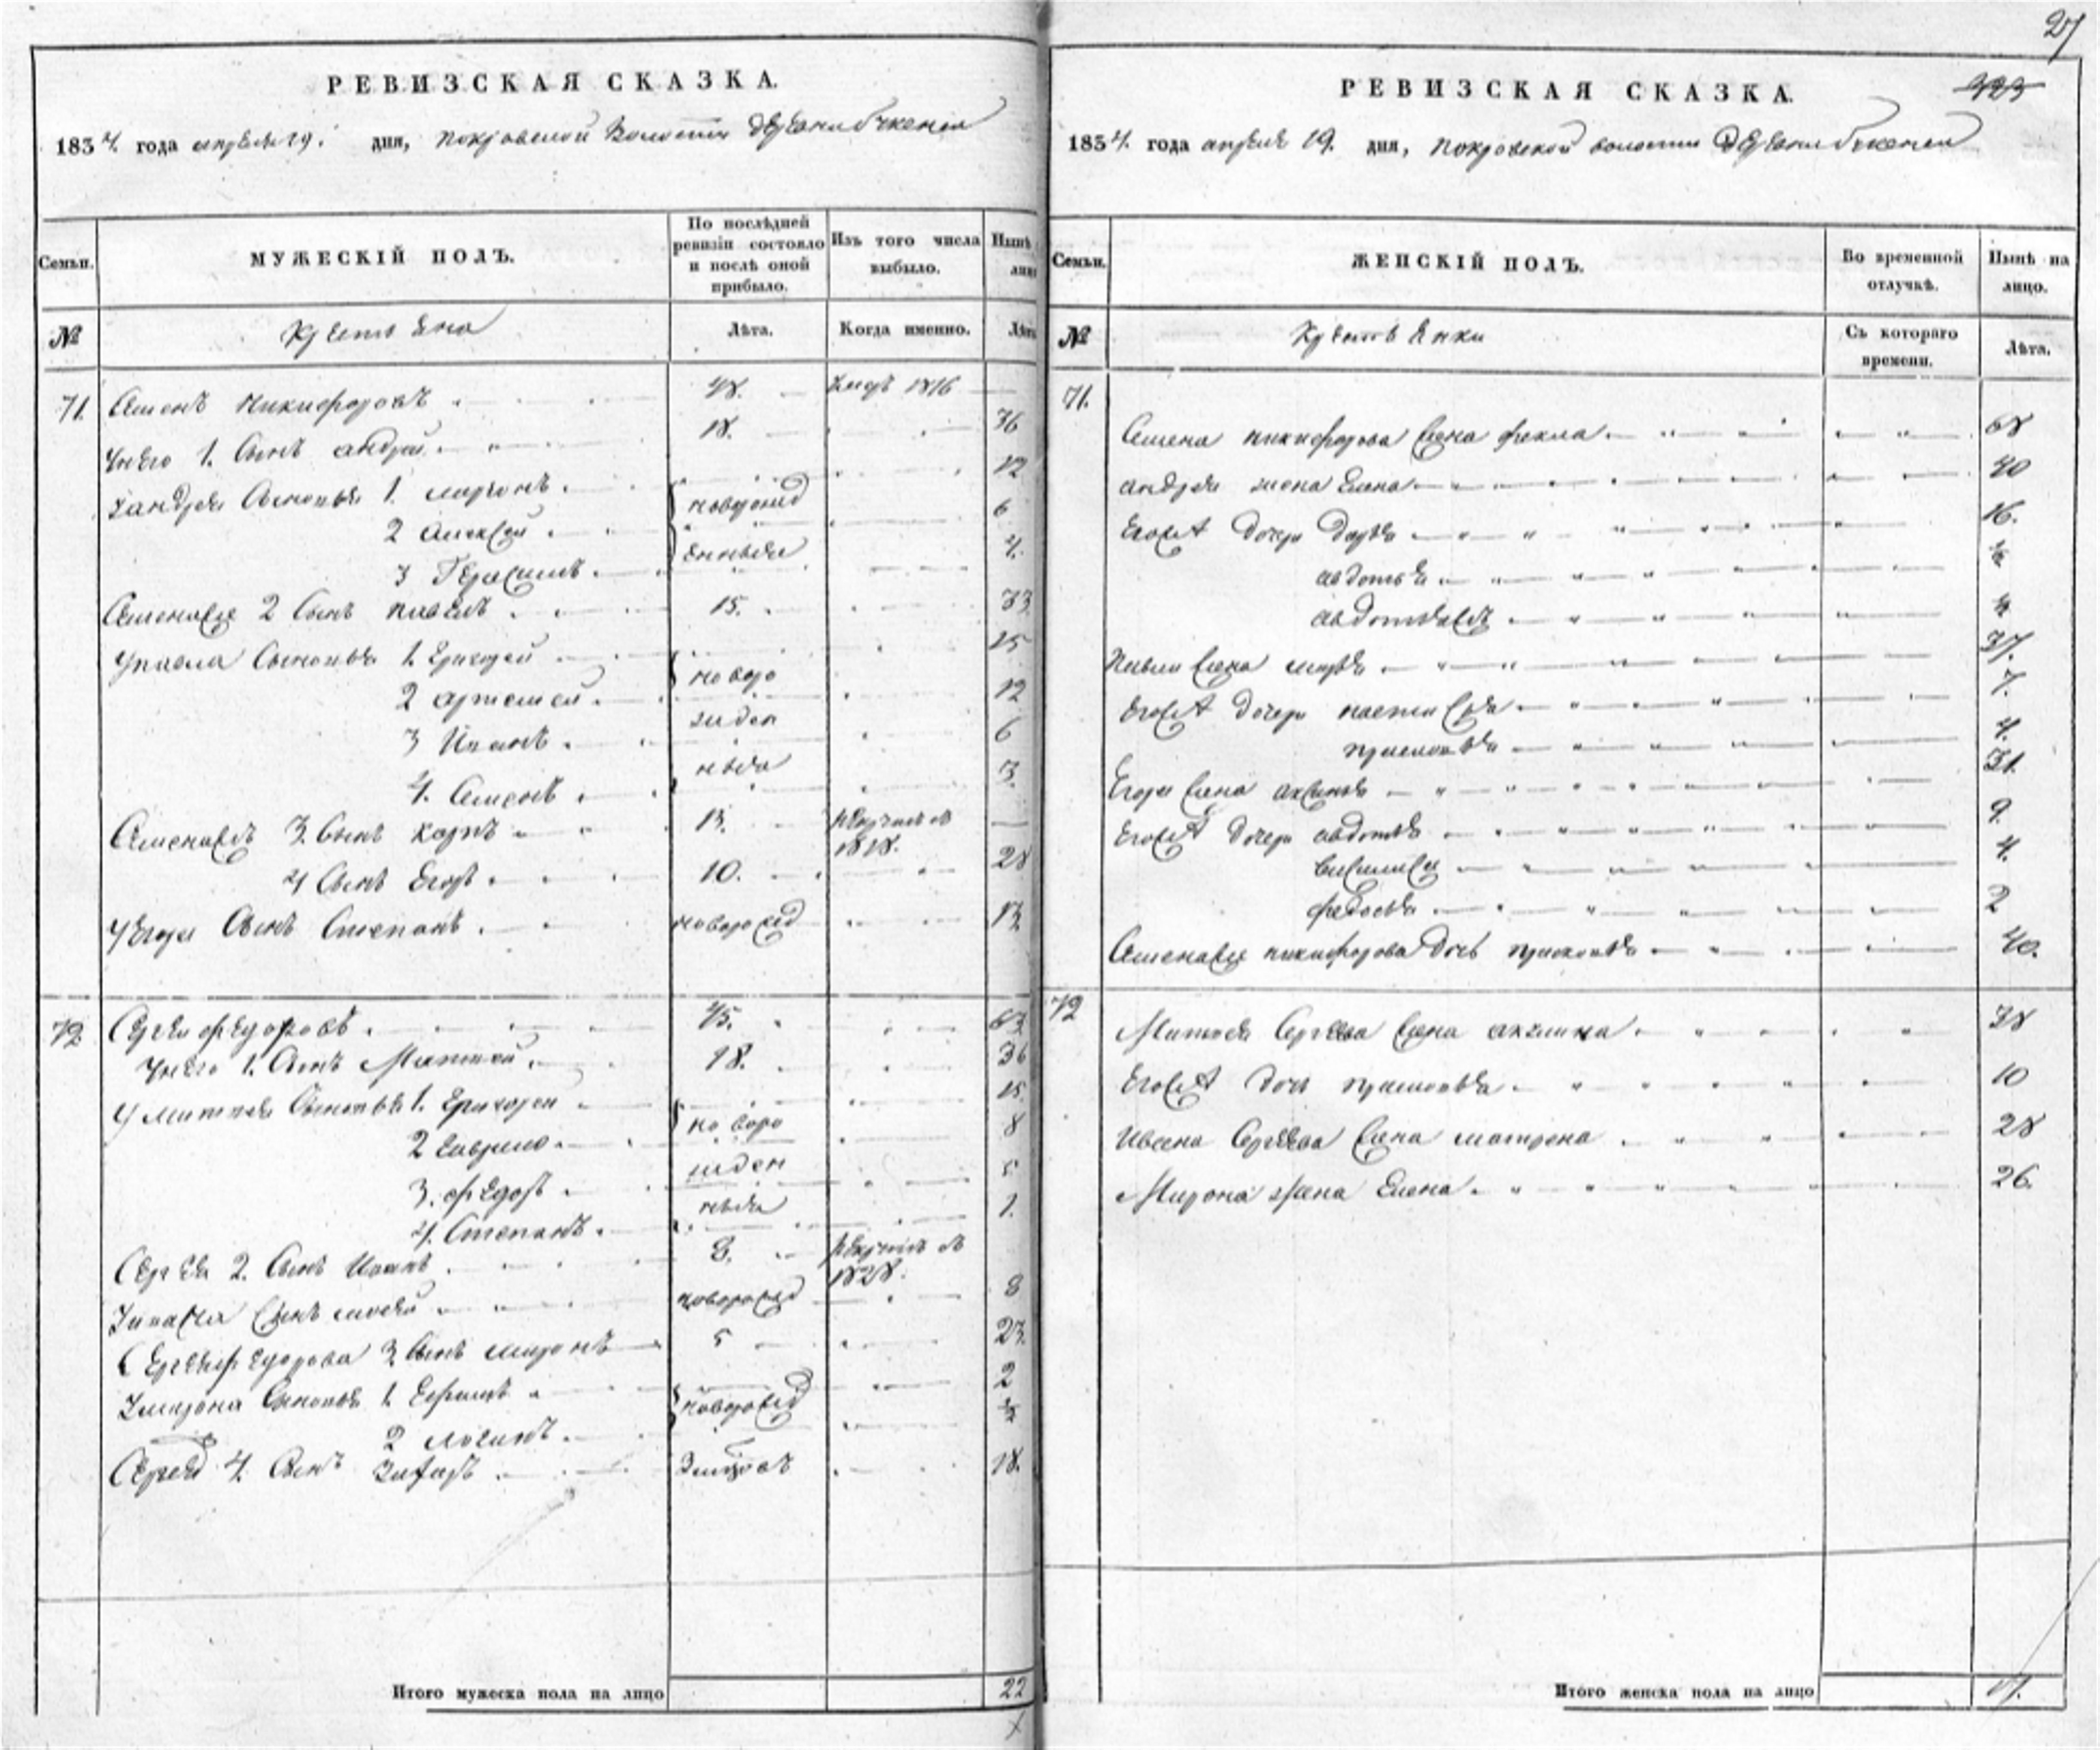 27
РЕВИЗСКАЯ СКАЗКА.
1834. года апреля 19. дня, покровской волости
Семьи.
МУЖЕСКІЙ ПОЛЪ.
По послѣдней ревизіи состояло и послѣ оной прибыло.
Изъ того числа выбыло.
Нынѣ
№
Лѣта.
Когда именно.
Лѣта
71. Семенъ Никифоровъ 48. 1816
У него 1. Сынъ андрей 18. 36
У андрея Сыновья 1. миронъ 12
2 Алексей новорожд 6
3 Герасимъ енныя 4.
Семена 2 Сынъ павелъ 15. 33.
У павла Сыновья 1. Григорей 15
2 артемей новоро 12
3 Иванъ жден 6
4. Семенъ ныя 3.
Семена 3. Сынъ карпъ 13. 1818.
4 Сынъ Егоръ 10. 28
У Егора Сынъ Степанъ новорожд 13
72 Сергей федоровъ 45. 63
У него 1. Сынъ Матвей 18. 36
У матвея Сыновья 1. Григорей 15.
2 Гаврило новоро 8
3. федоръ жден 5
4. Степанъ ныя 1.
Сергея 2. Сынъ Иванъ 8. 1828.
У ивана Сынъ новорожд 8
Сергея федорова 3 Сынъ миронъ 5 23.
У мирона Сыновья 1. Ефимъ новорожд 2
2 логинъ ½
Сергея 4. Сынъ Захаръ 18.
Итого мужеска пола на лицо 22
РЕВИЗСКАЯ СКАЗКА.
323
1834. года апреля 19. дня, покровской волости
Семьи.
ЖЕНСКІЙ ПОЛЪ.
Во временной отлучкѣ.
Нынѣ на лицо.
№
Съ котораго времени.
Лѣта.
71.
Семена никифорова жена фекла 68
андрея жена Елена 40
Его дочери дарья 16.
авдотья
авдотья
Павла жена марья 37.
Его дочери настасья 7.
прасковья 4.
Егора жена аксинья 31.
Его дочери авдотья 9.
василиса 4.
федосья 2
Семена никифорова дочь прасковья 40.
72
Матвея Сергеева жена акулина 38
Его дочь прасковья 10
Ивана Сергеева жена матрена 28
Мирона жена Елена 26.
Итого женска пола на лицо 17.